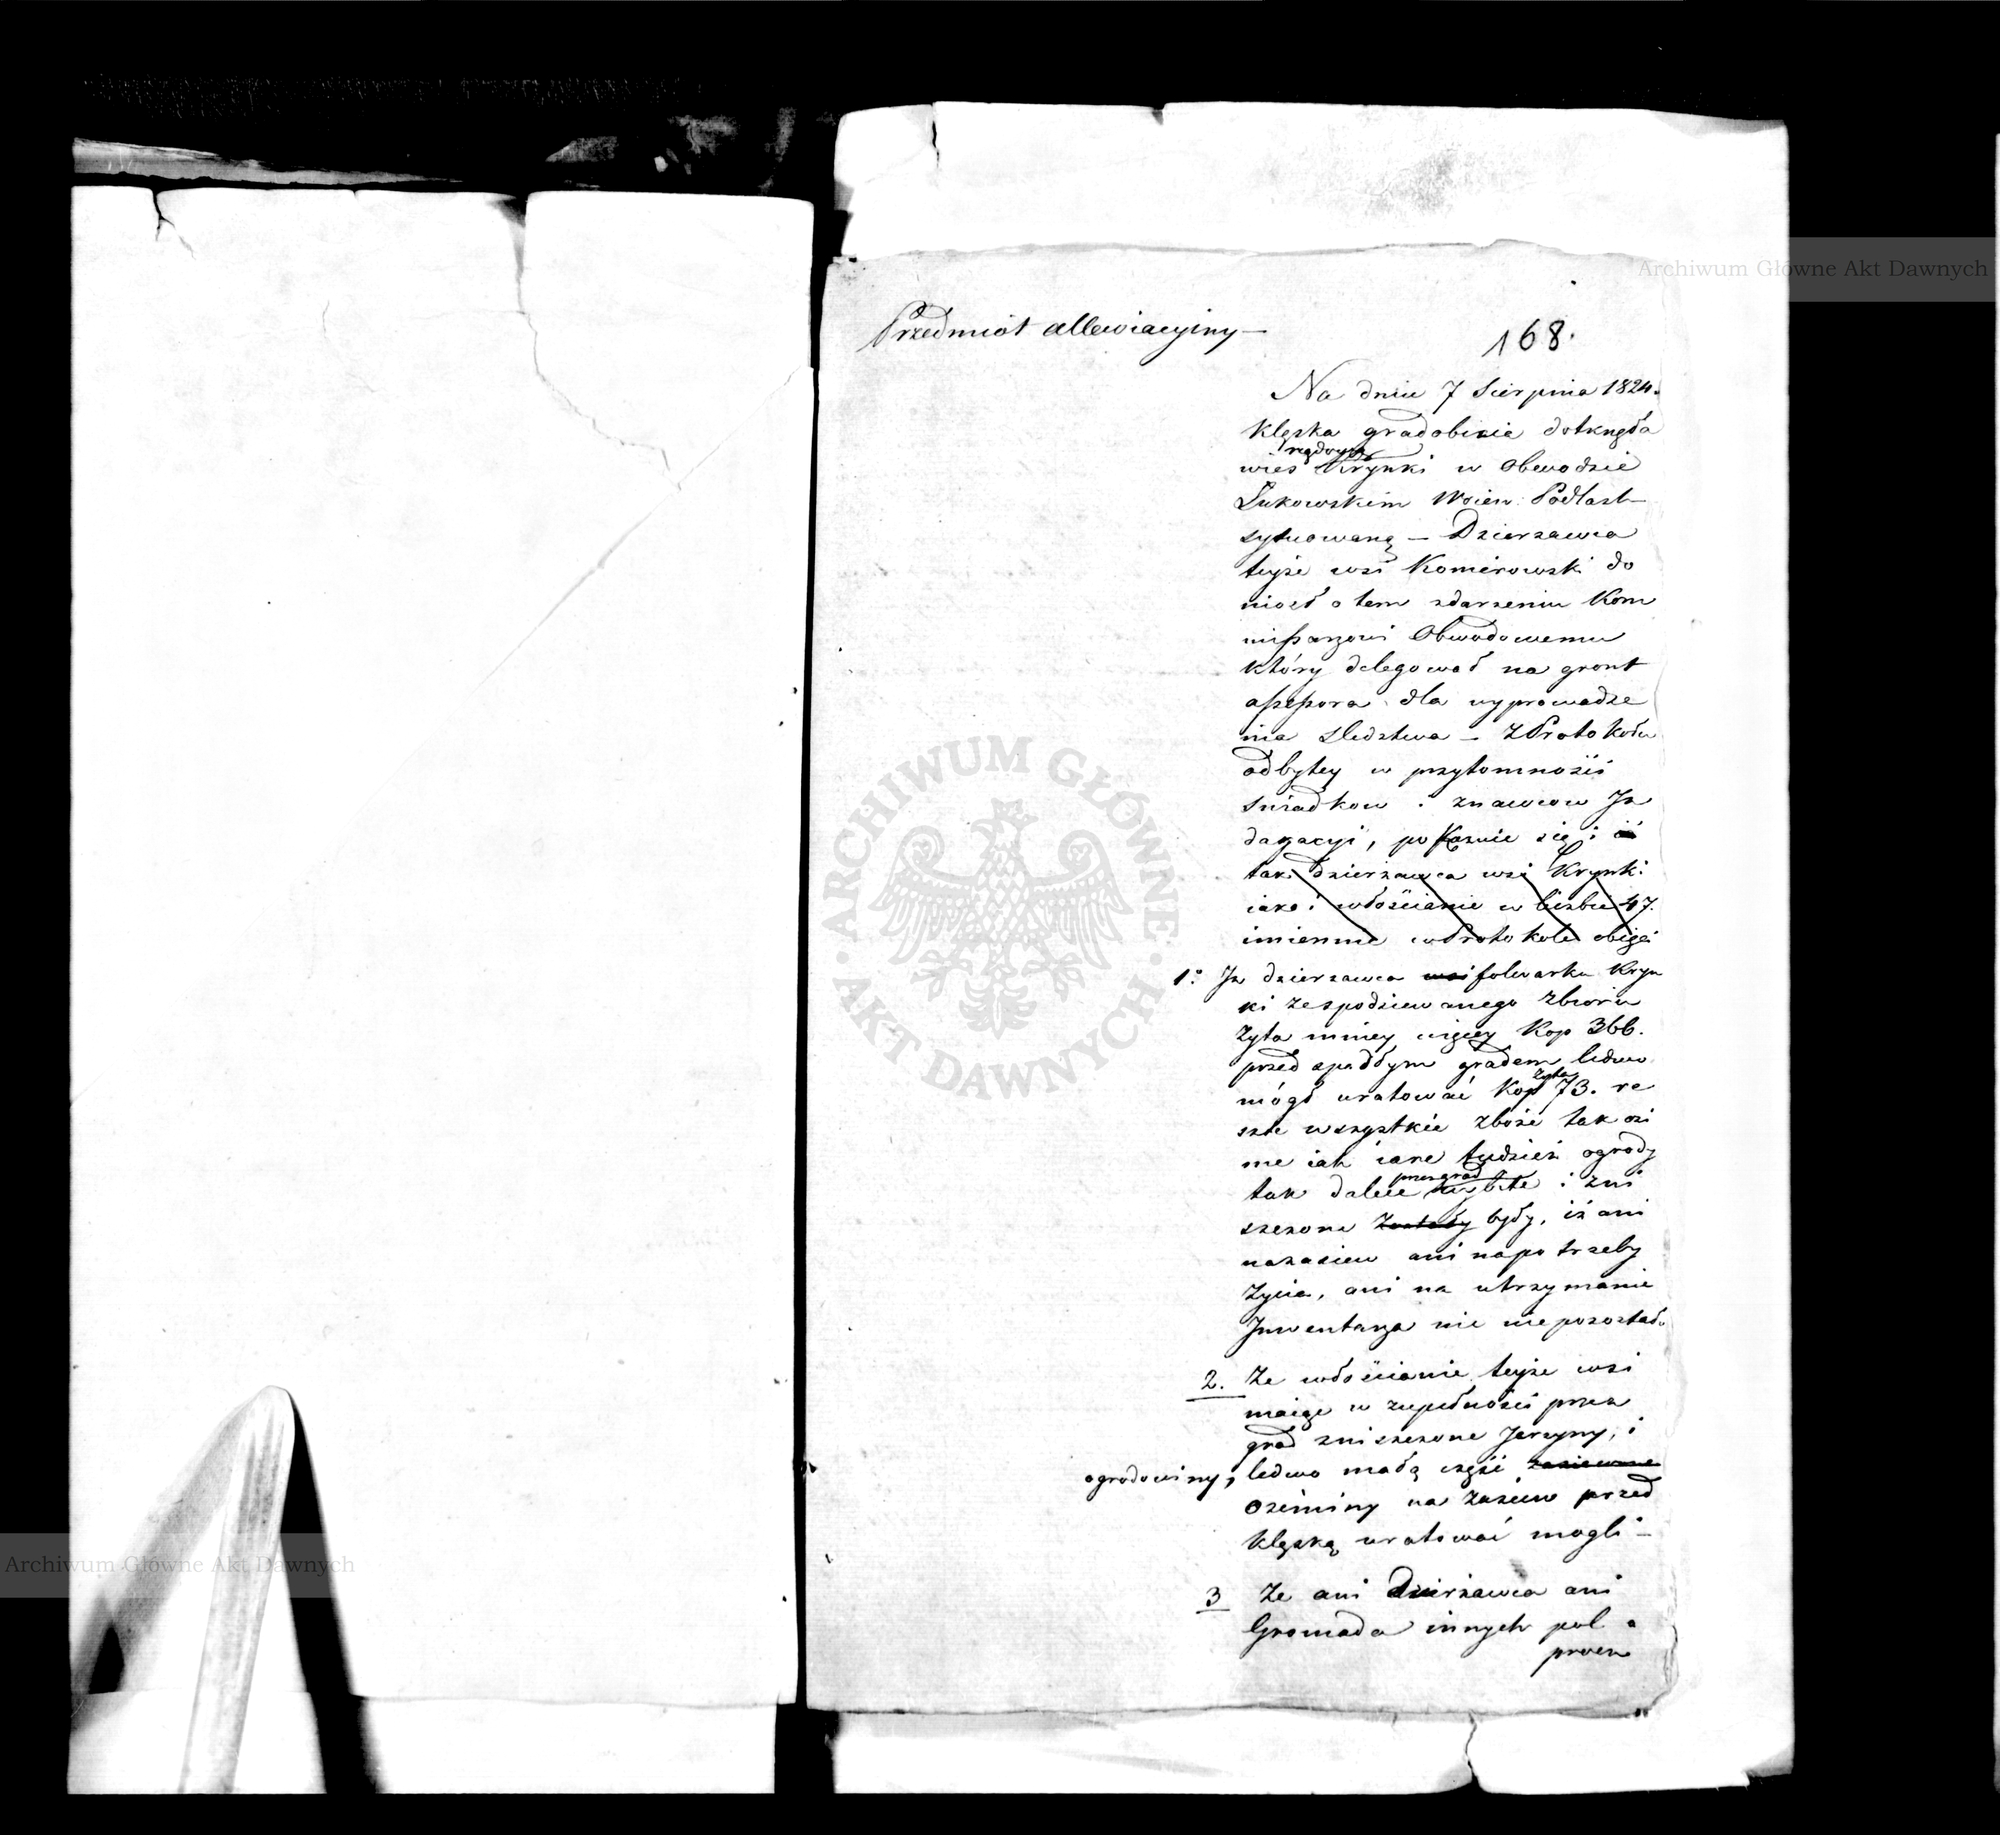 Przedmiot allewiacyiny —
168.
Na dniu 7 Sierpnia 1824.
Klęska gradobicia dotknęła
rządową
wies Krynki w Obwodzie
Łukowskim Woiew: Podlask—
sytuowaną — Dzierzawca
teyże wsi Komierowski do
niosł o tem zdarzeniu Kom
missarzowi Obwodowemu
który delegował na gront
assessora dla wyprowadze
nia sledztwa — Z Protokołu
odbytey w przytomności
swiadkow i znawcow In
dagacyi, pokazuie się:
tak dzierżawca wsi Krynki
iako i włościanie w liczbie 47.
imiennie w Protokole obięci
1° Iz dzierzawca wsi folwarku Kryn
ki ze spodziewanego zbioru
żyta mniey więcey Kop 366.
przed spadłym gradem ledwo
żyta
mógł uratować Kop 73. re
szta wszystkie zboże tak ozi
me iak iare tudzież ogrody
przez grad
tak dalece wybite i zni
szczone zostały były, iż ani
na zasiew ani na potrzeby
życia, ani na utrzymanie
Inwentarza nic nie pozostało
2. Ze włościanie teyże wsi
maiąc w zupełności przez
grad zniszczone Jarzyny, i
ogrodowiny, ledwo małą część zasiewne
Oziminy na zasiew przed
klęską uratować mogli —
3 Ze ani Dzierżawca ani
Gromada innych pol a
ARCHIWUM GŁÓWNE
AKT DAWNYCH
Archiwum Główne Akt Dawnych
Archiwum Główne Akt Dawnych